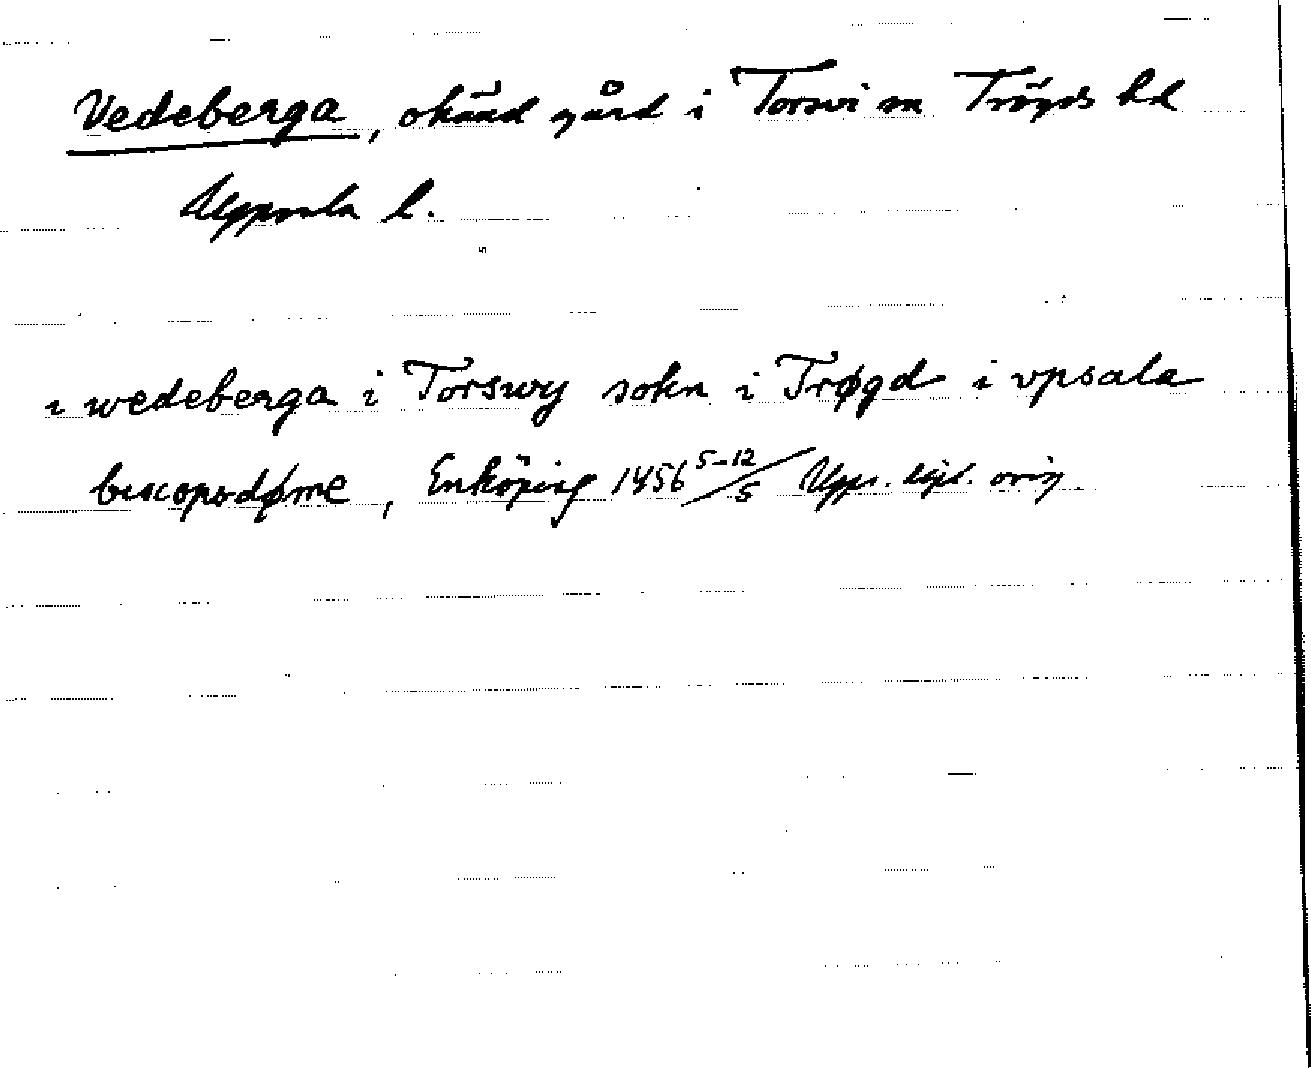 Vedeberga, okänd gård i Torsvi sn Trögds hd
Uppsala l.
i wedeberga i Torswy sokn i Trøgd i vpsala
biscopsdøme, Enköping 1456 5-12/5 Upps. orig